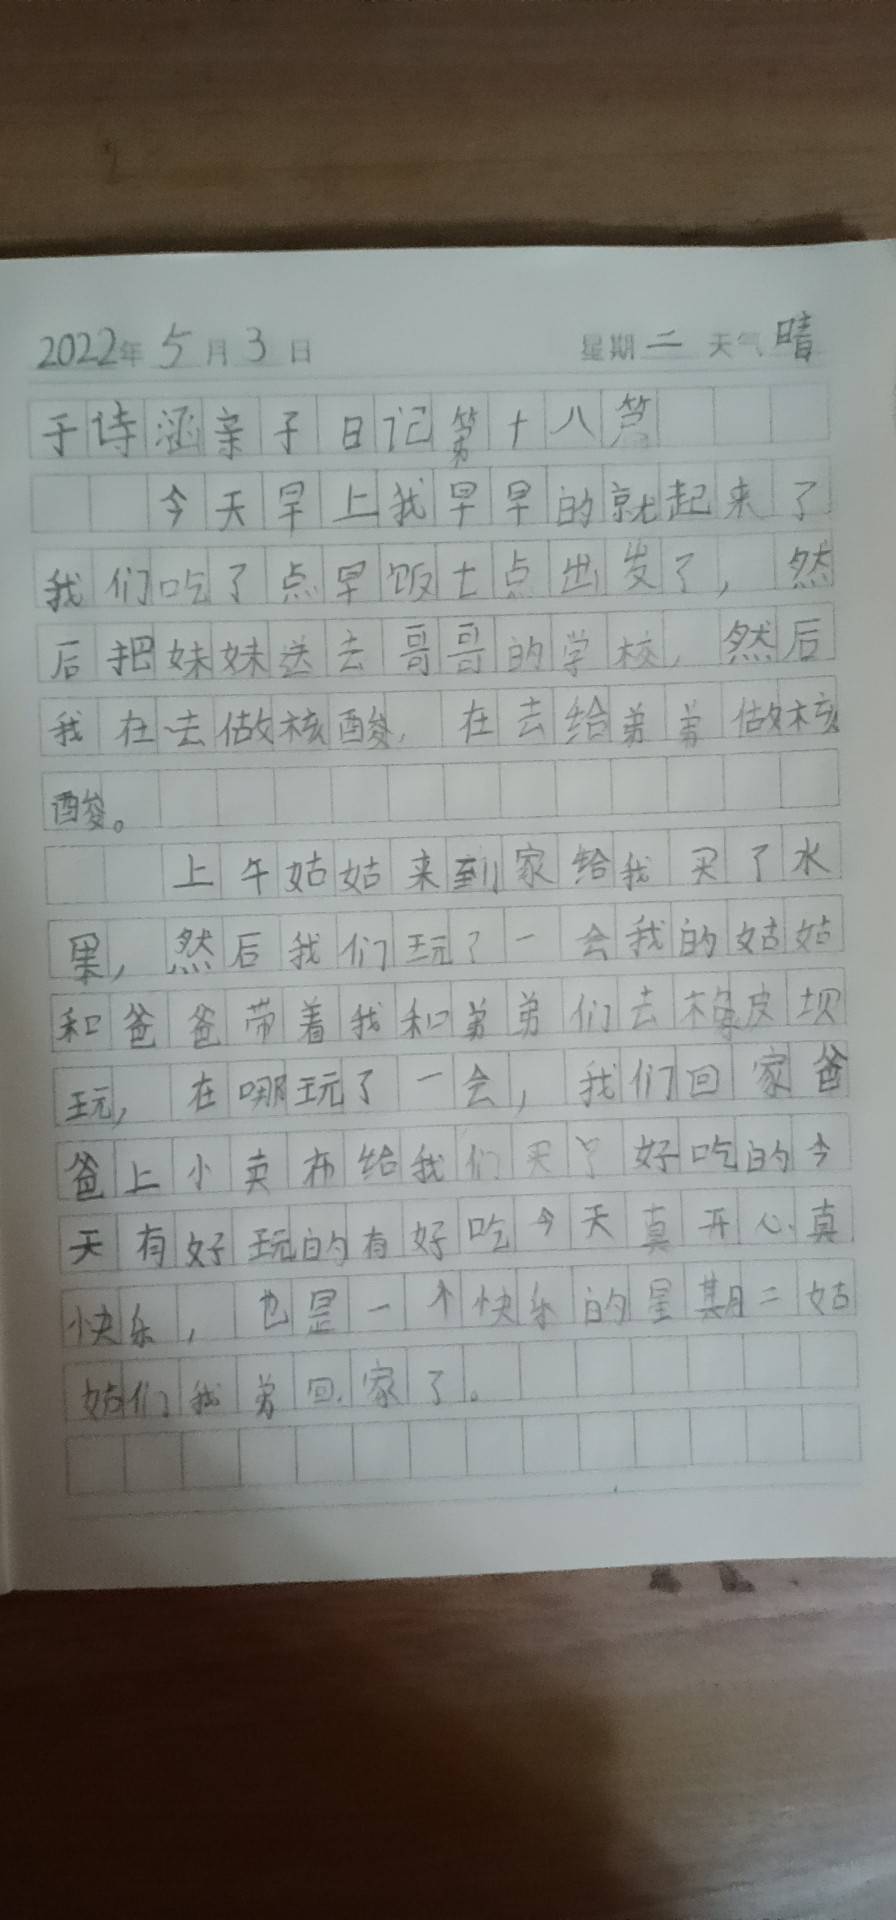 2022年5月3日 星期二 天气晴
于诗涵亲子日记第十八篇
今天早上我早早的就起来了
我们吃了点早饭七点出发了，然
后把妹妹送去哥哥的学校，然后
我在去做核酸，在去给弟弟做核
酸。
上午姑姑来到家给我买了水
果，然后我们玩了一会我的姑姑
和爸爸带着我和弟弟们去橡皮坝
玩，在哪玩了一会，我们回家爸
爸上小卖布给我们买了好吃的今
天有好玩的有好吃今天真开心真
快乐，也是一个快乐的星期二姑
姑们我弟回家了。